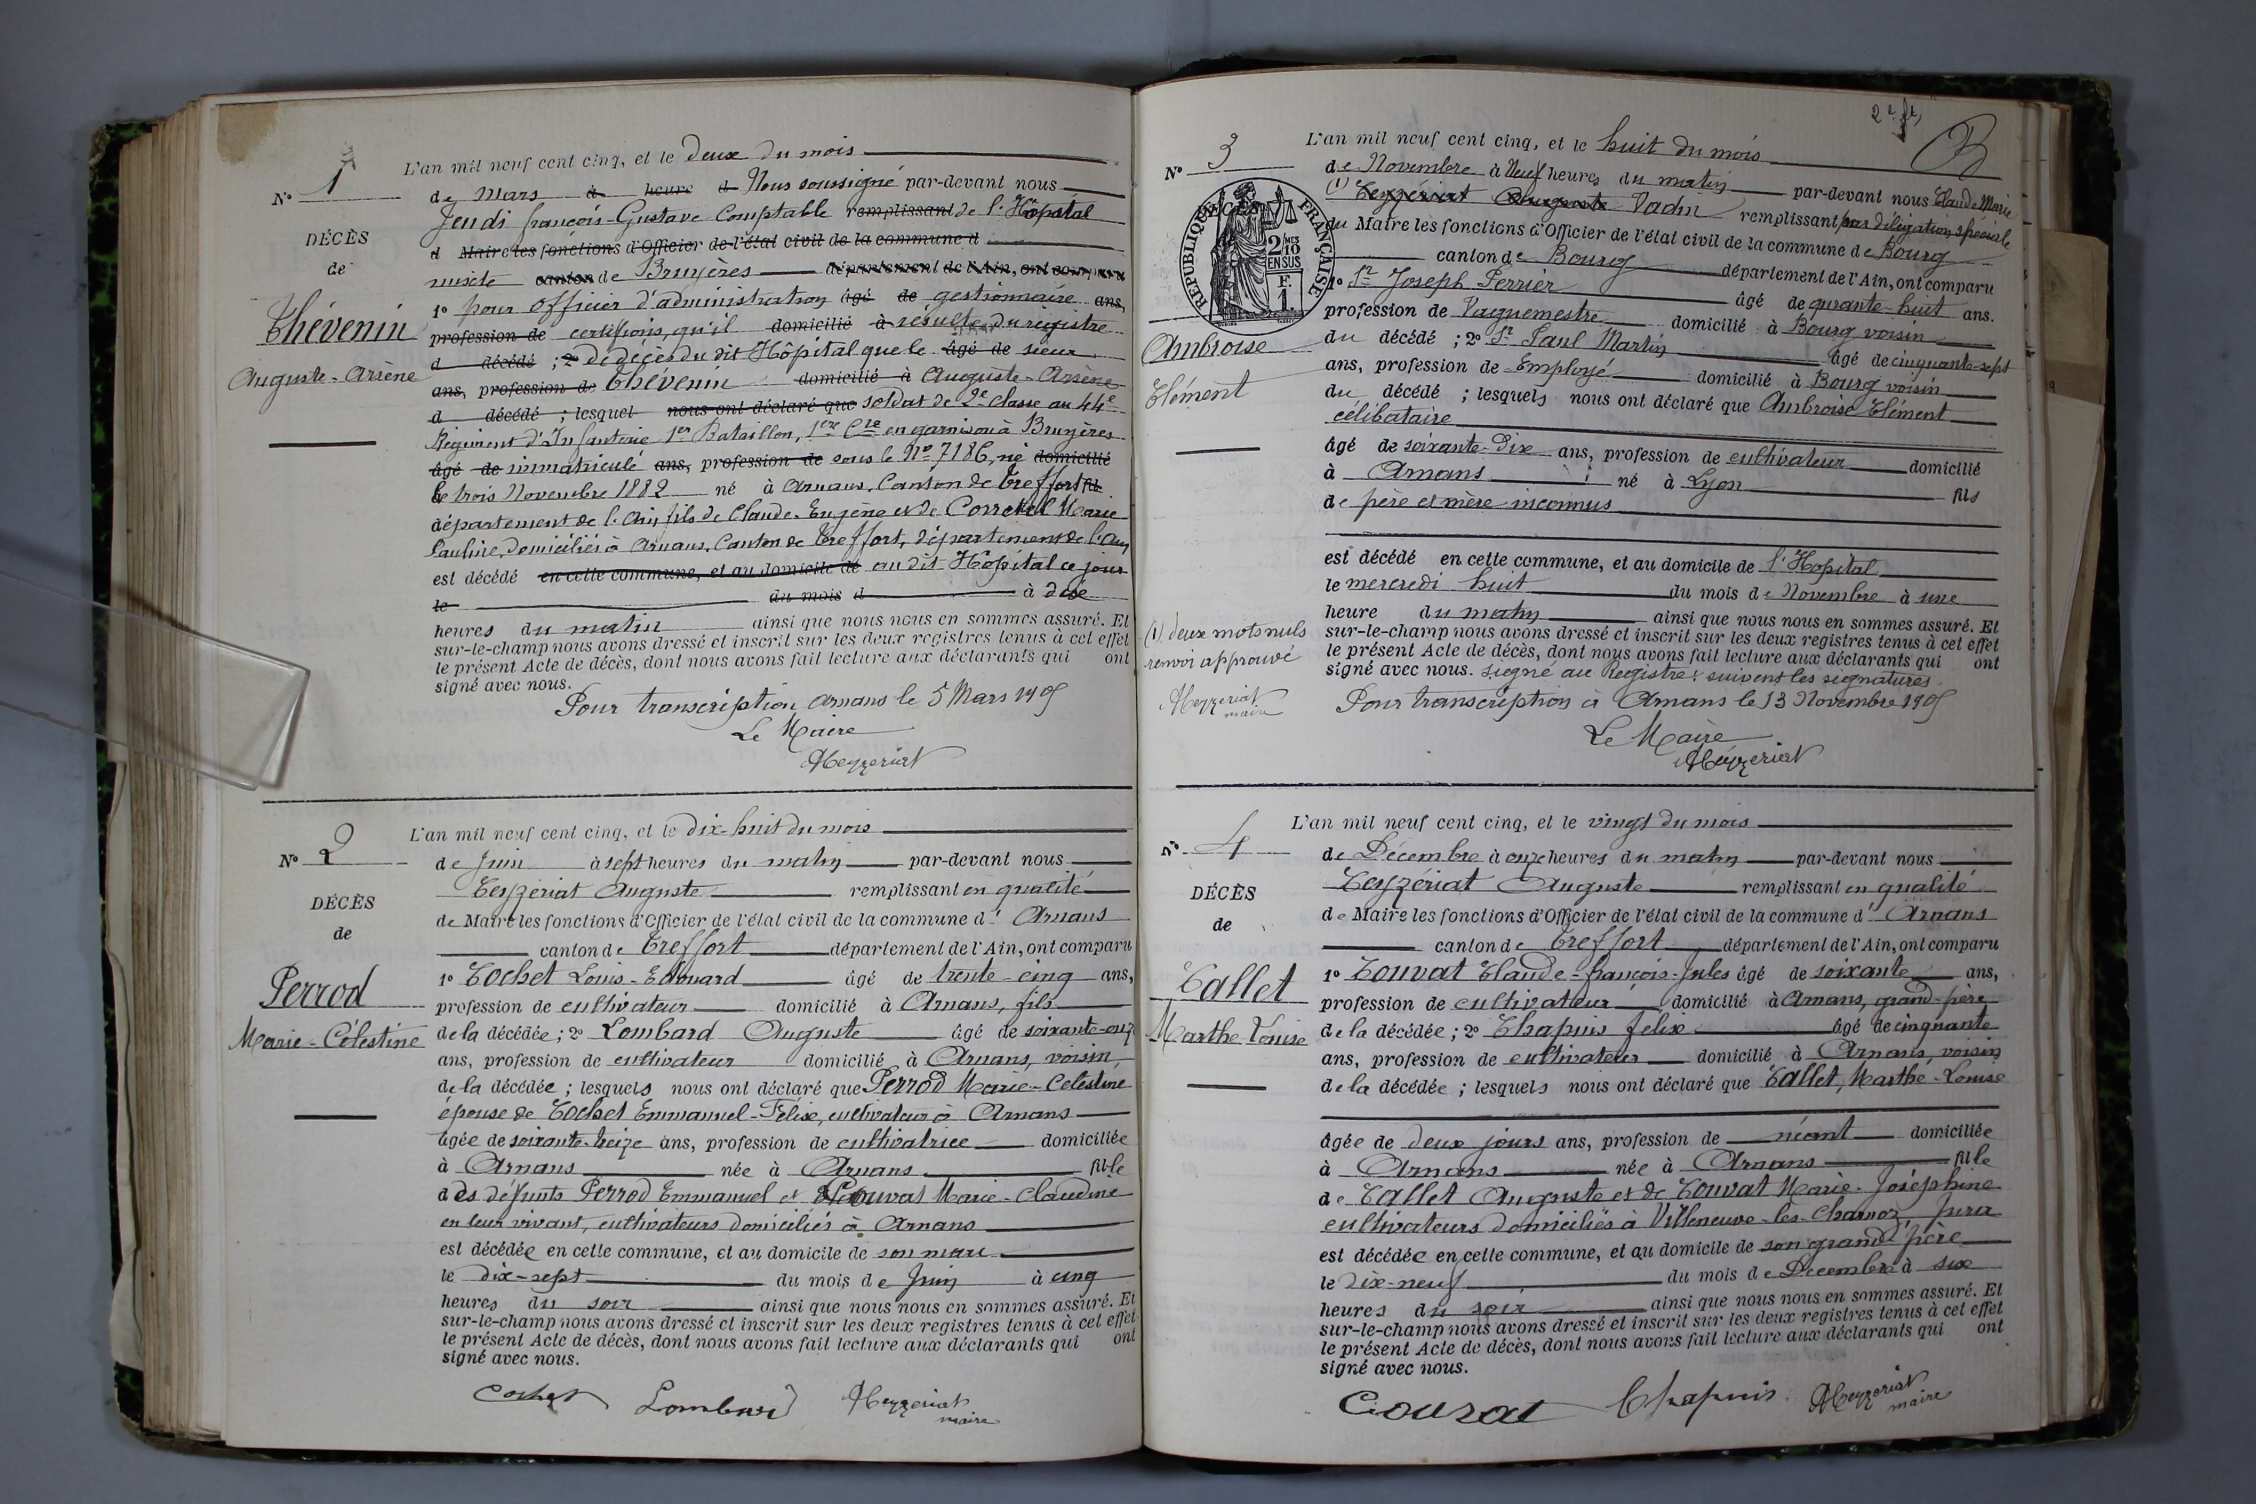 N° 1
DÉCÈS
de
Thévenin
Auguste-Arsène
L'an mil neuf cent cinq, et le deux du mois
de Mars à heure d Nous soussigné par-devant nous
Jeudi françois-Gustave Comptable remplissant de l'Hôpital
d Maire les fonctions d'Officier de l'état civil de la commune d
mixte canton de Bruyères département de l'Ain, ont comparu
1° pour Officier d'administration âgé de gestionnaire ans,
profession de certifions, qu'il domicilié à résulte du registre
d décédé ; 2° de décès du dit Hôpital que le âgé de sieur
ans, profession de Thévenin domicilié à Auguste-Arsène
d décédé ; lesquel nous ont déclaré que soldat de 2e classe au 44e
Régiment d'Infanterie 1er Bataillon, 1ere Cie en garnison à Bruyères
âgé de immatriculé ans, profession de sous le N° 7186, né domicilié
le trois Novembre 1882 né à Arnans, Canton de Treffort fils
département de l'Ain, fils de Claude-Eugène et de Corretel Marie
Pauline, domiciliés à Arnans, Canton de Treffort, département de l'Ain
est décédé en cette commune, et au domicile de au dit Hôpital ce jour
le du mois d à dix
heures du matin ainsi que nous nous en sommes assuré. Et
sur-le-champ nous avons dressé et inscrit sur les deux registres tenus à cet effet
le présent Acte de décès, dont nous avons fait lecture aux déclarants qui ont
signé avec nous.
Pour transcription Arnans le 5 Mars 1905
Le Maire
AMeyzeriat
N° 2
DÉCÈS
de
Perrod
Marie-Célestine
L'an mil neuf cent cinq, et le dix-huit du mois
de Juin à sept heures du matin par-devant nous
Teyzériat Auguste remplissant en qualité
de Maire les fonctions d'Officier de l'état civil de la commune d' Arnans
canton de Treffort département de l'Ain, ont comparu
1° Cochet Louis-Edouard âgé de trente-cinq ans,
profession de cultivateur domicilié à Arnans, fils
de la décédée ; 2° Lombard Auguste âgé de soixante-onze
ans, profession de cultivateur domicilié à Arnans, voisin
de la décédée ; lesquels nous ont déclaré que Perrod Marie-Célestine
épouse de Cochet Emmanuel-Félix, cultivateur à Arnans
âgée de soixante-treize ans, profession de cultivatrice domiciliée
à Arnans née à Arnans fille
des défunts Perrod Emmanuel et Pouvat Marie-Claudine
en leur vivant, cultivateurs domiciliés à Arnans
est décédée en cette commune, et au domicile de son mari
le dix-sept du mois de Juin à cinq
heures du soir ainsi que nous nous en sommes assuré. Et
sur-le-champ nous avons dressé et inscrit sur les deux registres tenus à cet effet
le présent Acte de décès, dont nous avons fait lecture aux déclarants qui ont
signé avec nous.
Cochet Lombard AMeyzeriat
maire
2e ft,
N° 3
RÉPUBLIQUE FRANÇAISE
2/10 EN SUS
F. 1
Ambroise
Clément
(1) deux mots nuls
renvoi approuvé
AMeyzeriat
maire
L'an mil neuf cent cinq, et le huit du mois
de Novembre à Neuf heures du matin par-devant nous Claude Marie
(1) Teyzériat Auguste Vadin remplissant par délégation spéciale
du Maire les fonctions d'Officier de l'état civil de la commune de Bourg
canton de Bourg département de l'Ain, ont comparu
1° Sr Joseph Perrier âgé de qurante-huit ans.
profession de Vaguemestre domicilié à Bourg voisin
du décédé ; 2° Sr Paul Martin âgé de cinquante-sept
ans, profession de Employé domicilié à Bourg voisin
du décédé ; lesquels nous ont déclaré que Ambroise Clément
célibataire
âgé de soixante-dix ans, profession de cultivateur domicilié
à Arnans né à Lyon fils
de père et mère inconnus
est décédé en cette commune, et au domicile de l'Hopital
le mercredi huit du mois de Novembre à une
heure du matin ainsi que nous nous en sommes assuré. Et
sur-le-champ nous avons dressé et inscrit sur les deux registres tenus à cet effet
le présent Acte de décès, dont nous avons fait lecture aux déclarants qui ont
signé avec nous. Signé au Registre: suivent les signatures.
Pour transcription à Arnans le 13 Novembre 1905
Le Maire
AMeyzeriat
N° 4
DÉCÈS
de
Callet
Marthe-Louise
L'an mil neuf cent cinq, et le vingt du mois
de Décembre à onze heures du matin par-devant nous
Teyzériat Auguste remplissant en qualité
de Maire les fonctions d'Officier de l'état civil de la commune d' Arnans
canton de Treffort département de l'Ain, ont comparu
1° Couvat Claude-françois-Jules âgé de soixante ans,
profession de cultivateur domicilié à Arnans, grand-père
de la décédée ; 2° Chapuis felix âgé de cinquante
ans, profession de cultivateur domicilié à Arnans, voisin
de la décédée ; lesquels nous ont déclaré que Callet, Marthe-Louise
âgée de deux jours ans, profession de néant domiciliée
à Arnans née à Arnans fille
de Callet Auguste et de Couvat Marie-Joséphine
cultivateurs domiciliés à Villeneuve-les-Charnoz, Jura
est décédée en cette commune, et au domicile de son grand père
le dix-neuf du mois de Décembre à six
heures du soir ainsi que nous nous en sommes assuré. Et
sur-le-champ nous avons dressé et inscrit sur les deux registres tenus à cet effet
le présent Acte de décès, dont nous avons fait lecture aux déclarants qui ont
signé avec nous.
Couvat Chapuis AMeyzeriat
maire